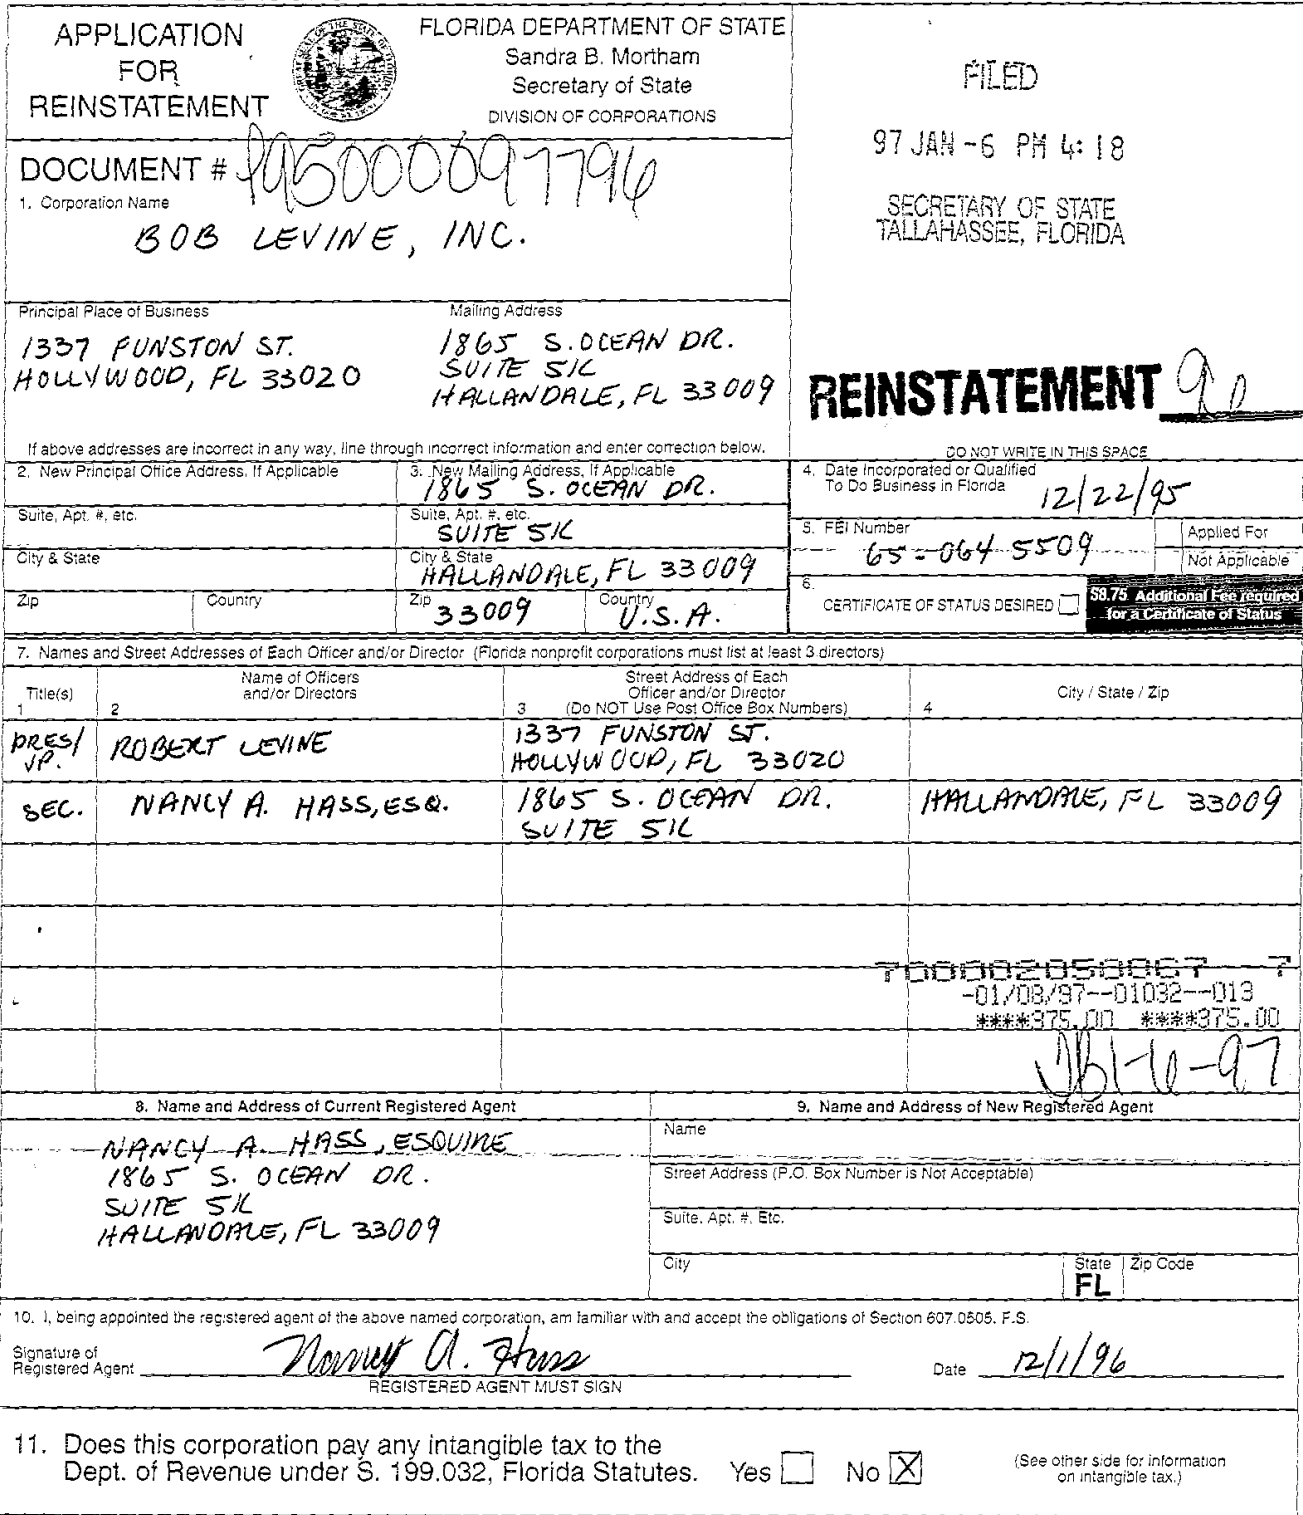 APPLICATION
FOR
REINSTATEMENT
FLORIDA DEPARTMENT OF STATE
Sandra B. Mortham
Secretary of State
DIVISION OF CORPORATIONS
FILED
97 JAN -6 PM 4:18
SECRETARY OF STATE
TALLAHASSEE, FLORIDA
DOCUMENT # P95000097796
1. Corporation Name
BOB LEVINE, INC.
Principal Place of Business
1337 FUNSTON ST.
HOLLYWOOD, FL 33020
Mailing Address
1865 S. OCEAN DR.
SUITE 51C
HALLANDALE, FL 33009
REINSTATEMENT
If above addresses are incorrect in any way, line through incorrect information and enter correction below.
DO NOT WRITE IN THIS SPACE
2. New Principal Office Address, If Applicable
Suite, Apt. #, etc.
City & State
Zip Country
3. New Mailing Address, If Applicable
1865 S. OCEAN DR.
Suite, Apt. #, etc.
SUITE 51C
City & State
HALLANDALE, FL 33009
Zip 33009 Country U.S.A.
4. Date Incorporated or Qualified
To Do Business in Florida
12/22/95
5. FEI Number
65-0645509
Applied For
Not Applicable
6.
CERTIFICATE OF STATUS DESIRED
$8.75 Additional Fee required
for a Certificate of Status
7. Names and Street Addresses of Each Officer and/or Director (Florida nonprofit corporations must list at least 3 directors)
Title(s)
1
Name of Officers
and/or Directors
2
Street Address of Each
Officer and/or Director
3 (Do NOT Use Post Office Box Numbers)
City / State / Zip
4
PRES/
VP.
ROBERT LEVINE
1337 FUNSTON ST.
HOLLYWOOD, FL 33020
SEC.
NANCY A. HASS, ESQ.
1865 S. OCEAN DR.
SUITE 51C
HALLANDALE, FL 33009
-01/08/97--01032--013
****375.00 ****375.00
1-6-97
8. Name and Address of Current Registered Agent
NANCY A. HASS, ESQUIRE
1865 S. OCEAN DR.
SUITE 51C
HALLANDALE, FL 33009
9. Name and Address of New Registered Agent
Name
Street Address (P.O. Box Number is Not Acceptable)
Suite, Apt. #, Etc.
City
State
FL
Zip Code
10. I, being appointed the registered agent of the above named corporation, am familiar with and accept the obligations of Section 607.0505, F.S.
Signature of
Registered Agent
Nancy A. Hass
REGISTERED AGENT MUST SIGN
Date 12/1/96
11. Does this corporation pay any intangible tax to the
Dept. of Revenue under S. 199.032, Florida Statutes. Yes No X
(See other side for information
on intangible tax.)